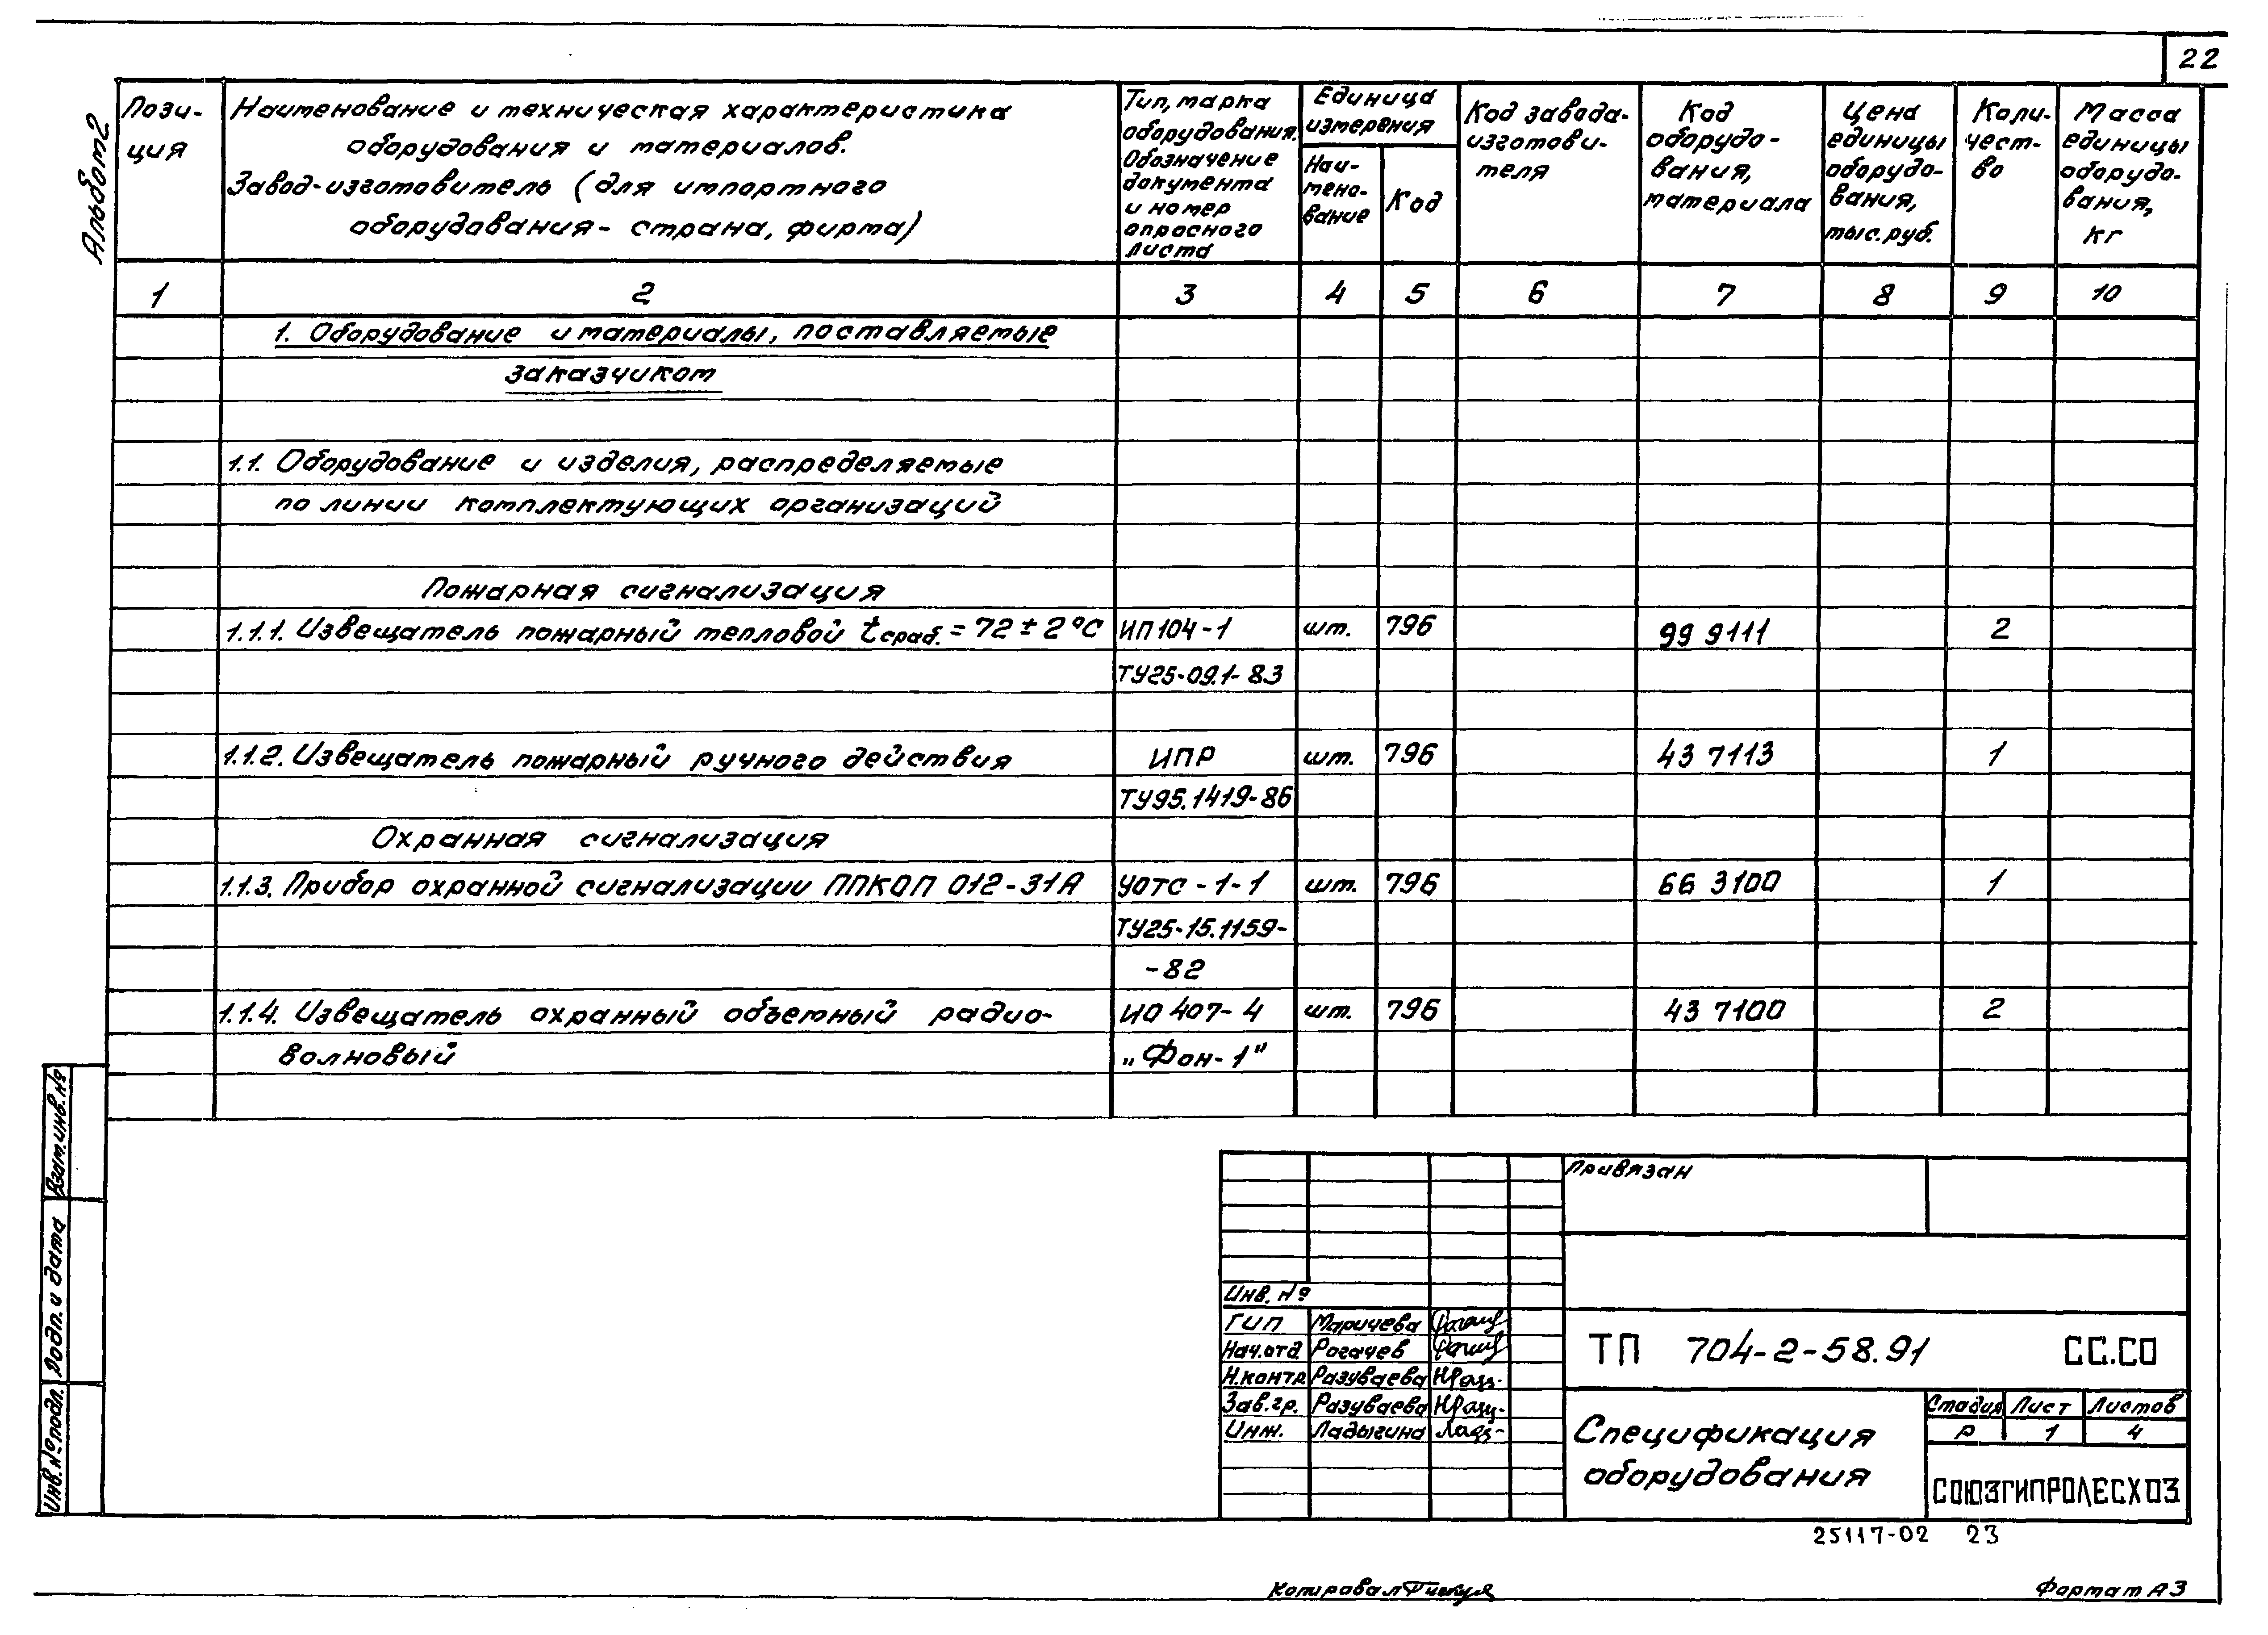 22
Альбом 2
Пози-
ция
Наименование и техническая характеристика
оборудования и материалов.
Завод-изготовитель (для импортного
оборудования - страна, фирма)
Тип, марка
оборудования.
Обозначение
документа
и номер
опросного
листа
Единица
измерения
Наи-
мено-
вание
Код
Код завода-
изготови-
теля
Код
оборудо-
вания,
материала
Цена
единицы
оборудо-
вания,
тыс.руб.
Коли-
чест-
во
Масса
единицы
оборудо-
вания,
кг
1 2 3 4 5 6 7 8 9 10
1. Оборудование и материалы, поставляемые
заказчиком
1.1. Оборудование и изделия, распределяемые
по линии комплектующих организаций
Пожарная сигнализация
1.1.1. Извещатель пожарный тепловой tсраб. = 72 ± 2°С ИП 104-1 шт. 796 99 9111 2
ТУ25-09.1-83
1.1.2. Извещатель пожарный ручного действия ИПР шт. 796 43 7113 1
ТУ95.1419-86
Охранная сигнализация
1.1.3. Прибор охранной сигнализации ППКОП 012-31А УОТС-1-1 шт. 796 66 3100 1
ТУ25-15.1159-
-82
1.1.4. Извещатель охранный объемный радио- ИО 407-4 шт. 796 43 7100 2
волновый „Фон-1"
Взам.инв.№
Подп. и дата
Инв.№ подл.
Привязан
Инв. №
ГИП Маричева
Нач.отд. Рогачев
Н.контр. Разуваева
Зав.гр. Разуваева
Инж. Ладыгина
ТП 704-2-58.91 СС.СО
Спецификация
оборудования
Стадия Лист Листов
Р 1 4
СОЮЗГИПРОЛЕСХОЗ
25117-02 23
Копировал
Формат А3